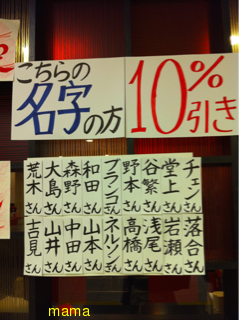 こちらの
名字の方
10%
引き
チェンさん
堂上さん
谷繁さん
野本さん
ブランコさん
和田さん
森野さん
大島さん
荒木さん
落合さん
岩瀬さん
浅尾さん
高橋さん
ネルソンさん
山本さん
中田さん
山井さん
吉見さん
mama